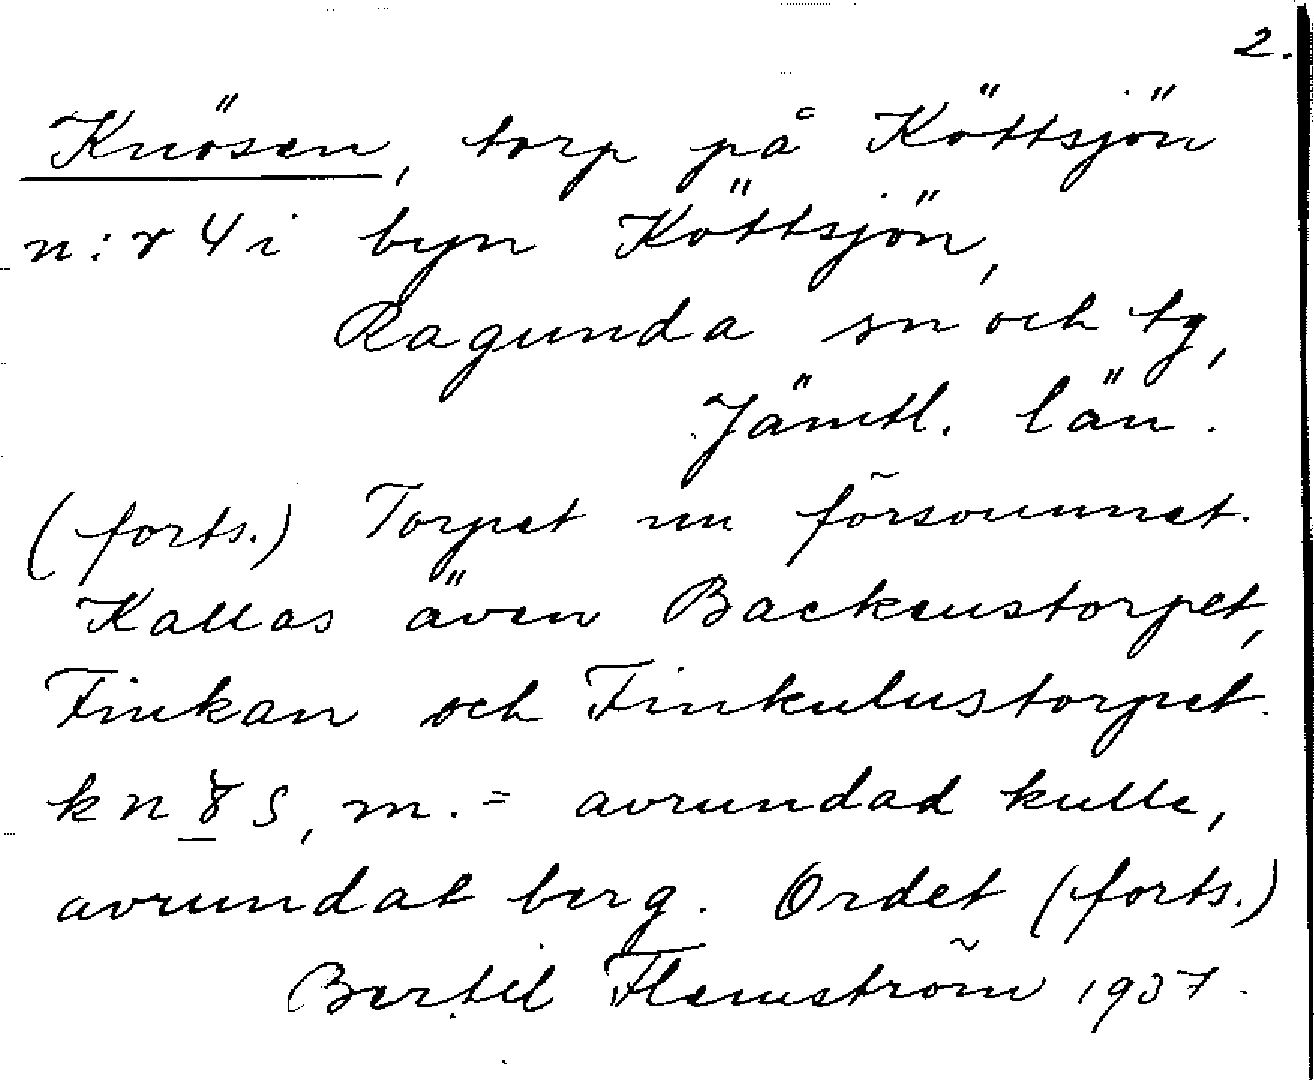 2.
Knösen, torp på Köttsjön
n:r 4 i byn Köttsjön,
Ragunda sn och tg,
Jämtl. län.
(forts.) Torpet nu försvunnet.
Kallas även Backenstorpet,
Finkan och Finkulustorpet.
avrundad kulle,
avrundat berg. Ordet (forts.)
Bertil Flemström 1937.